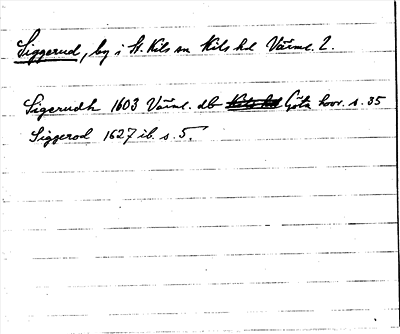 Siggerud, by i St. Kils sn Kils hd Värml. l.
Sigerudh 1603 Värml. db Göta hovr. s. 35
Siggerod 1627 ib. s. 5.